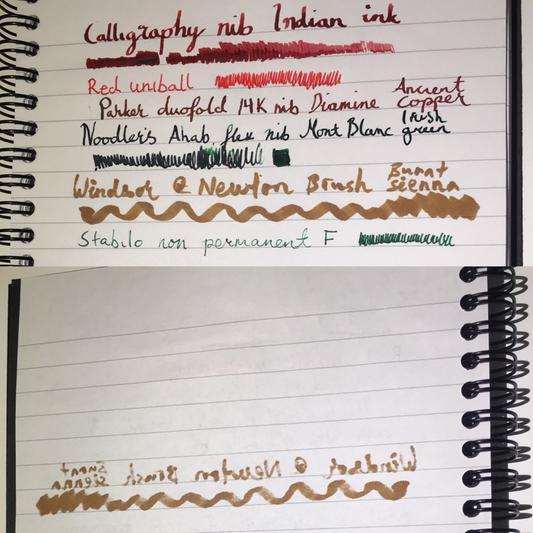 Calligraphy nib Indian ink
Red uniball
Parker duofold 14K nib Diamine Ancient Copper
Noodler's Ahab flex nib Mont Blanc Irish green
Windsor & Newton Brush Burnt sienna
Stabilo non permanent F
Windsor & Newton Brush Burnt sienna